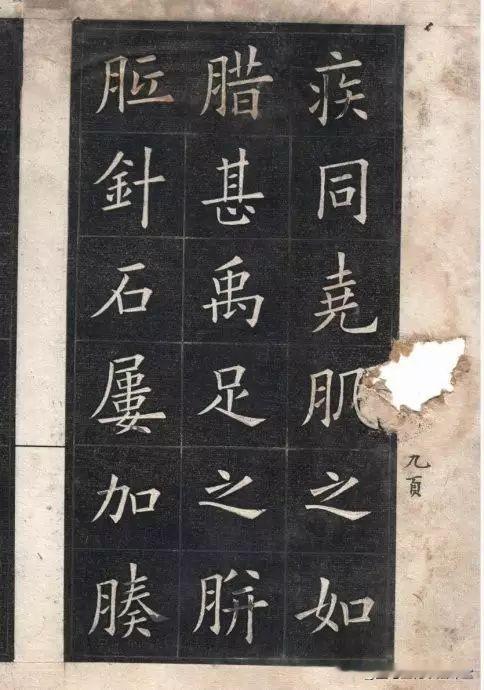 疾同堯肌之如
腊甚禹足之胼
胝針石屢加腠
九頁